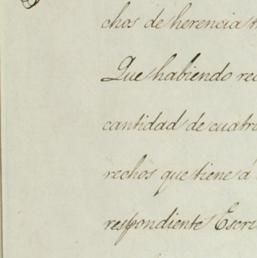 chos de herencia
Que habiendo re
cantidad de cuatro
rechos que tiene á
respondiente Escri